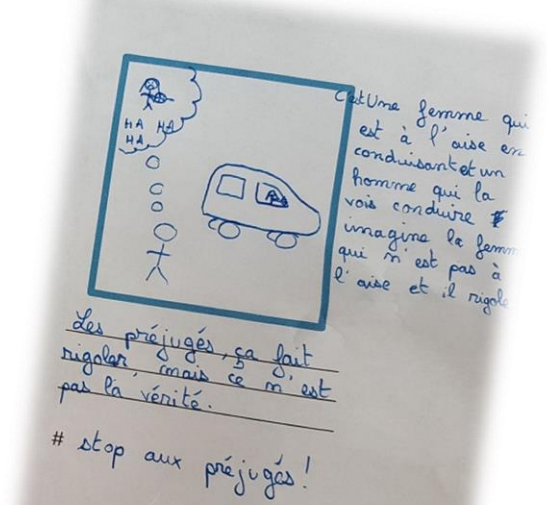 HA HA
HA
C'est Une femme qui
est à l'aise en
conduisant et un
homme qui la
vois conduire
imagine la femme
qui n'est pas à
l'aise et il rigole
Les préjugés, ça fait
rigoler, mais ce n'est
pas la vérité.
# stop aux préjugés !